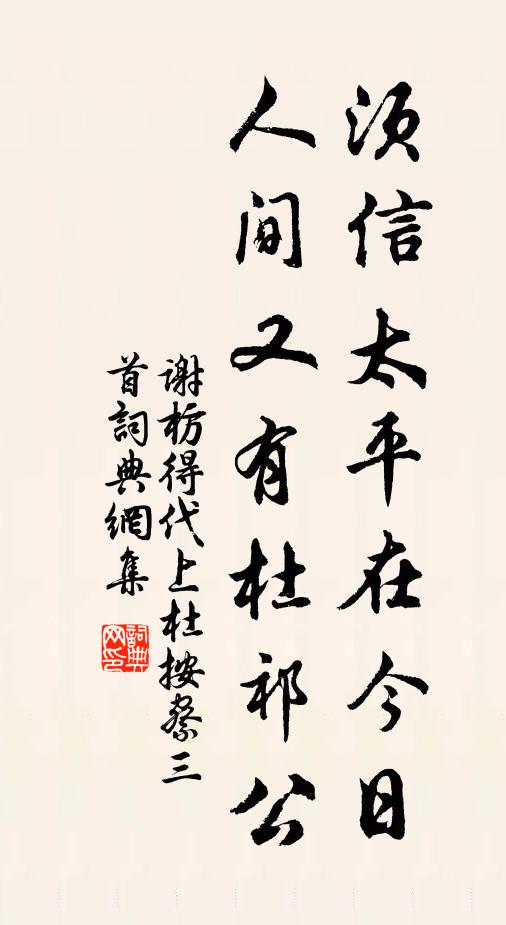 须信太平在今日
人间又有杜祁公
谢枋得代上杜按察三
首词典網集
詞典
网印